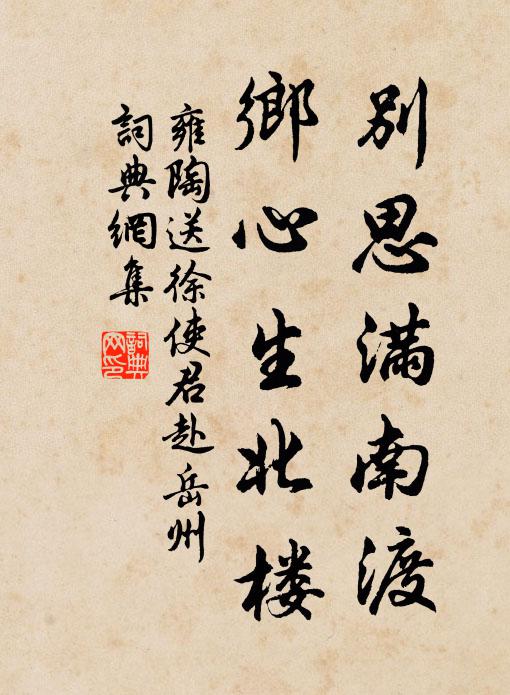 别思满南渡
鄉心生北楼
雍陶送徐使君赴岳州
詞典網集
詞典网印